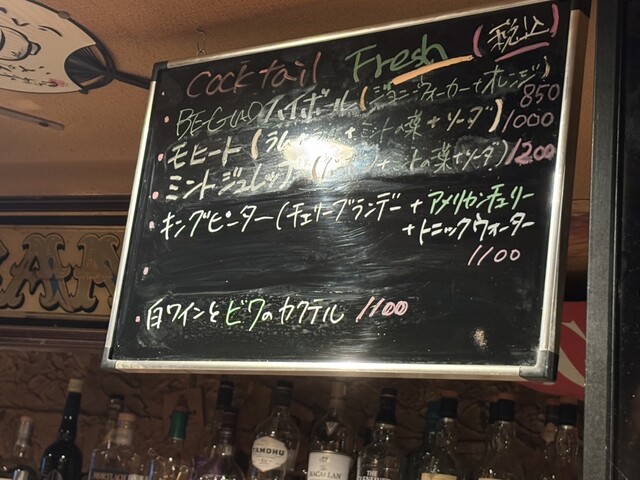 Cocktail Fresh (税込)
BEGUOハイボール(ジョニーウォーカー+オレンジ) 850
モヒート(ラム+ミントの葉+ソーダ) 1000
ミントジュレップ(ミントの葉+ソーダ) 1200
キングピーター(チェリーブランデー+アメリカンチェリー
+トニックウォーター
1100
白ワインとビワのカクテル 1100
TAMDHU
MACALLAN
MORTLACH
THE